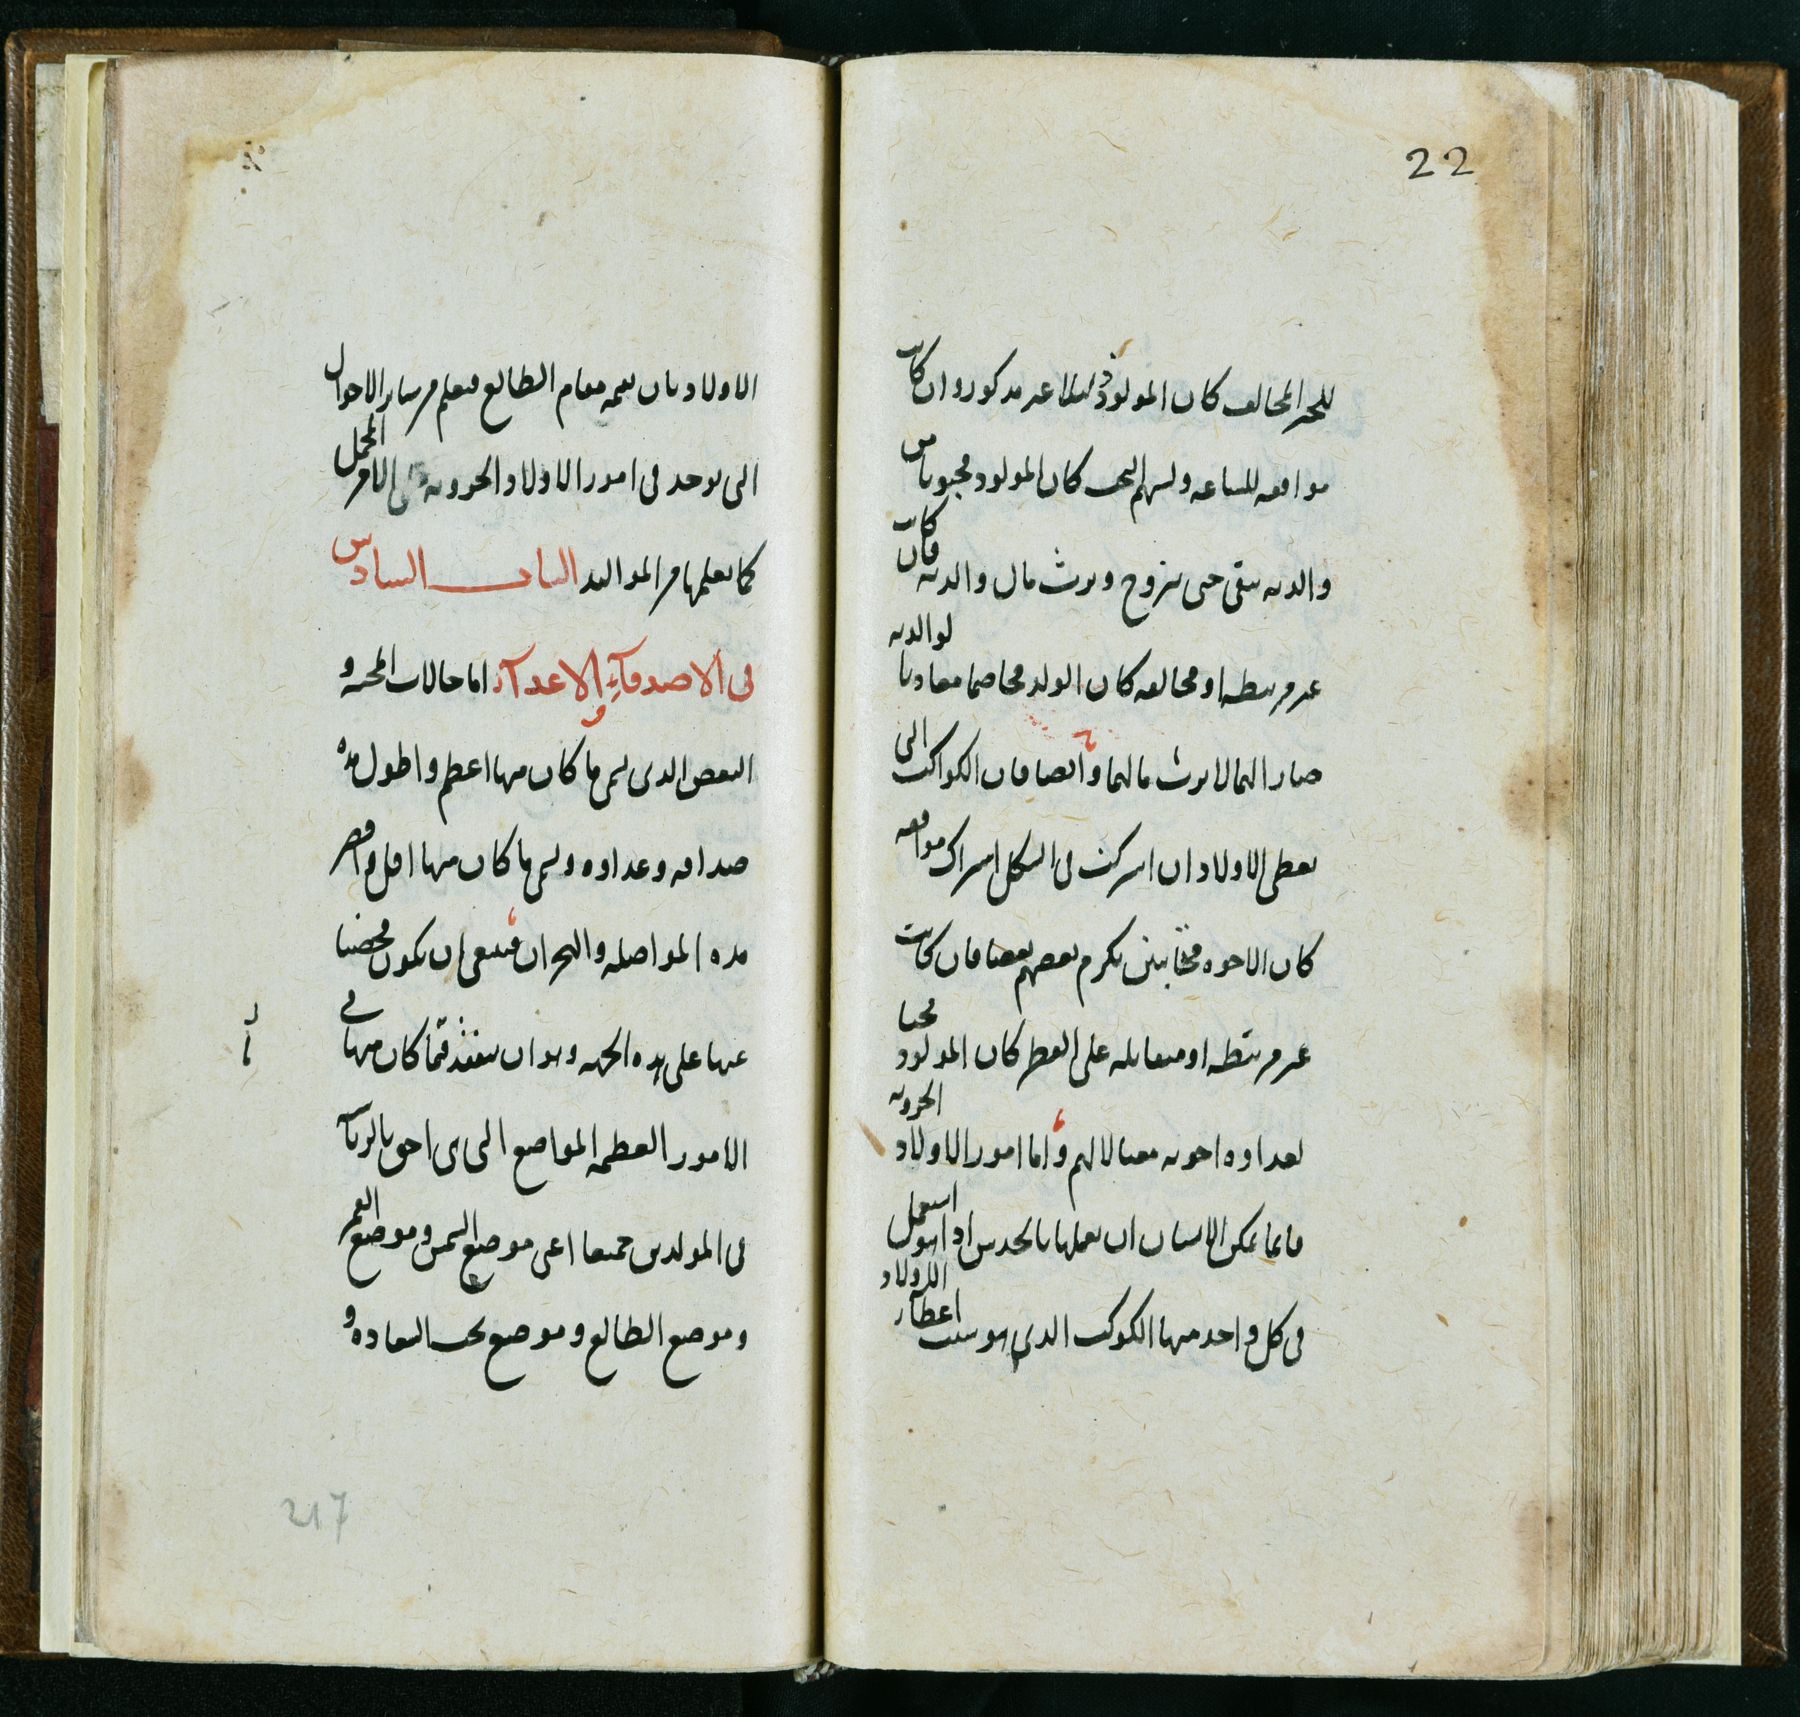 22
للخير المخالف كان المولود ذليلا غير مذكور وان كانت
موافقه للساعه ولسهم البخت كان المولود محبوبا من
والديه يبقى حتى يتزوج ويرث مال والديه فان كانت
غير مرتبطه او مخالفه كان الولد مخاصما معاديا لوالديه
ضارا لهما لا يرث مالهما وايضا فان الكواكب التى
يعطى الاولاد ان اشتركت فى الشكل اشتراك موافقه
كان الاخوه متحابين يكرم بعضهم بعضا فان كانت
غير مرتبطه او متقابله على القطر كان المولود محبا
لعداوه اخوته مغتالا لهم واما امور الاولاد الجزويه
فانما يمكن الانسان ان يعملها بالحدس اذا هو استعمل
فى كل واحد منها الكوكب الذى هو سبب اعطاء الاولاد
الاولاد بان يقيمه مقام الطالع فيعلم من سائر الاحوال
التى توجد فى امور الاولاد الجزويه على الامر المجمل
كما يعلمها من المواليد الباب السادس
فى الاصدقاء والاعداء اما حالات المحبه و
البغض الذى يسمى ما كان منها اعظم واطول مده
صداقه وعداوه ويسمى ما كان منها اقل واقصر
مده المواصله والهجران فينبغى ان يكون فحصنا
عنها على هذه الجهه وهو ان نتفقد فيما كان منها فى
الامور العظيمه المواضع التى هى احق بالرياسه
فى المولدين جميعا اعنى موضع الشمس وموضع القمر
وموضع الطالع وموضع بخت السعاده و
217